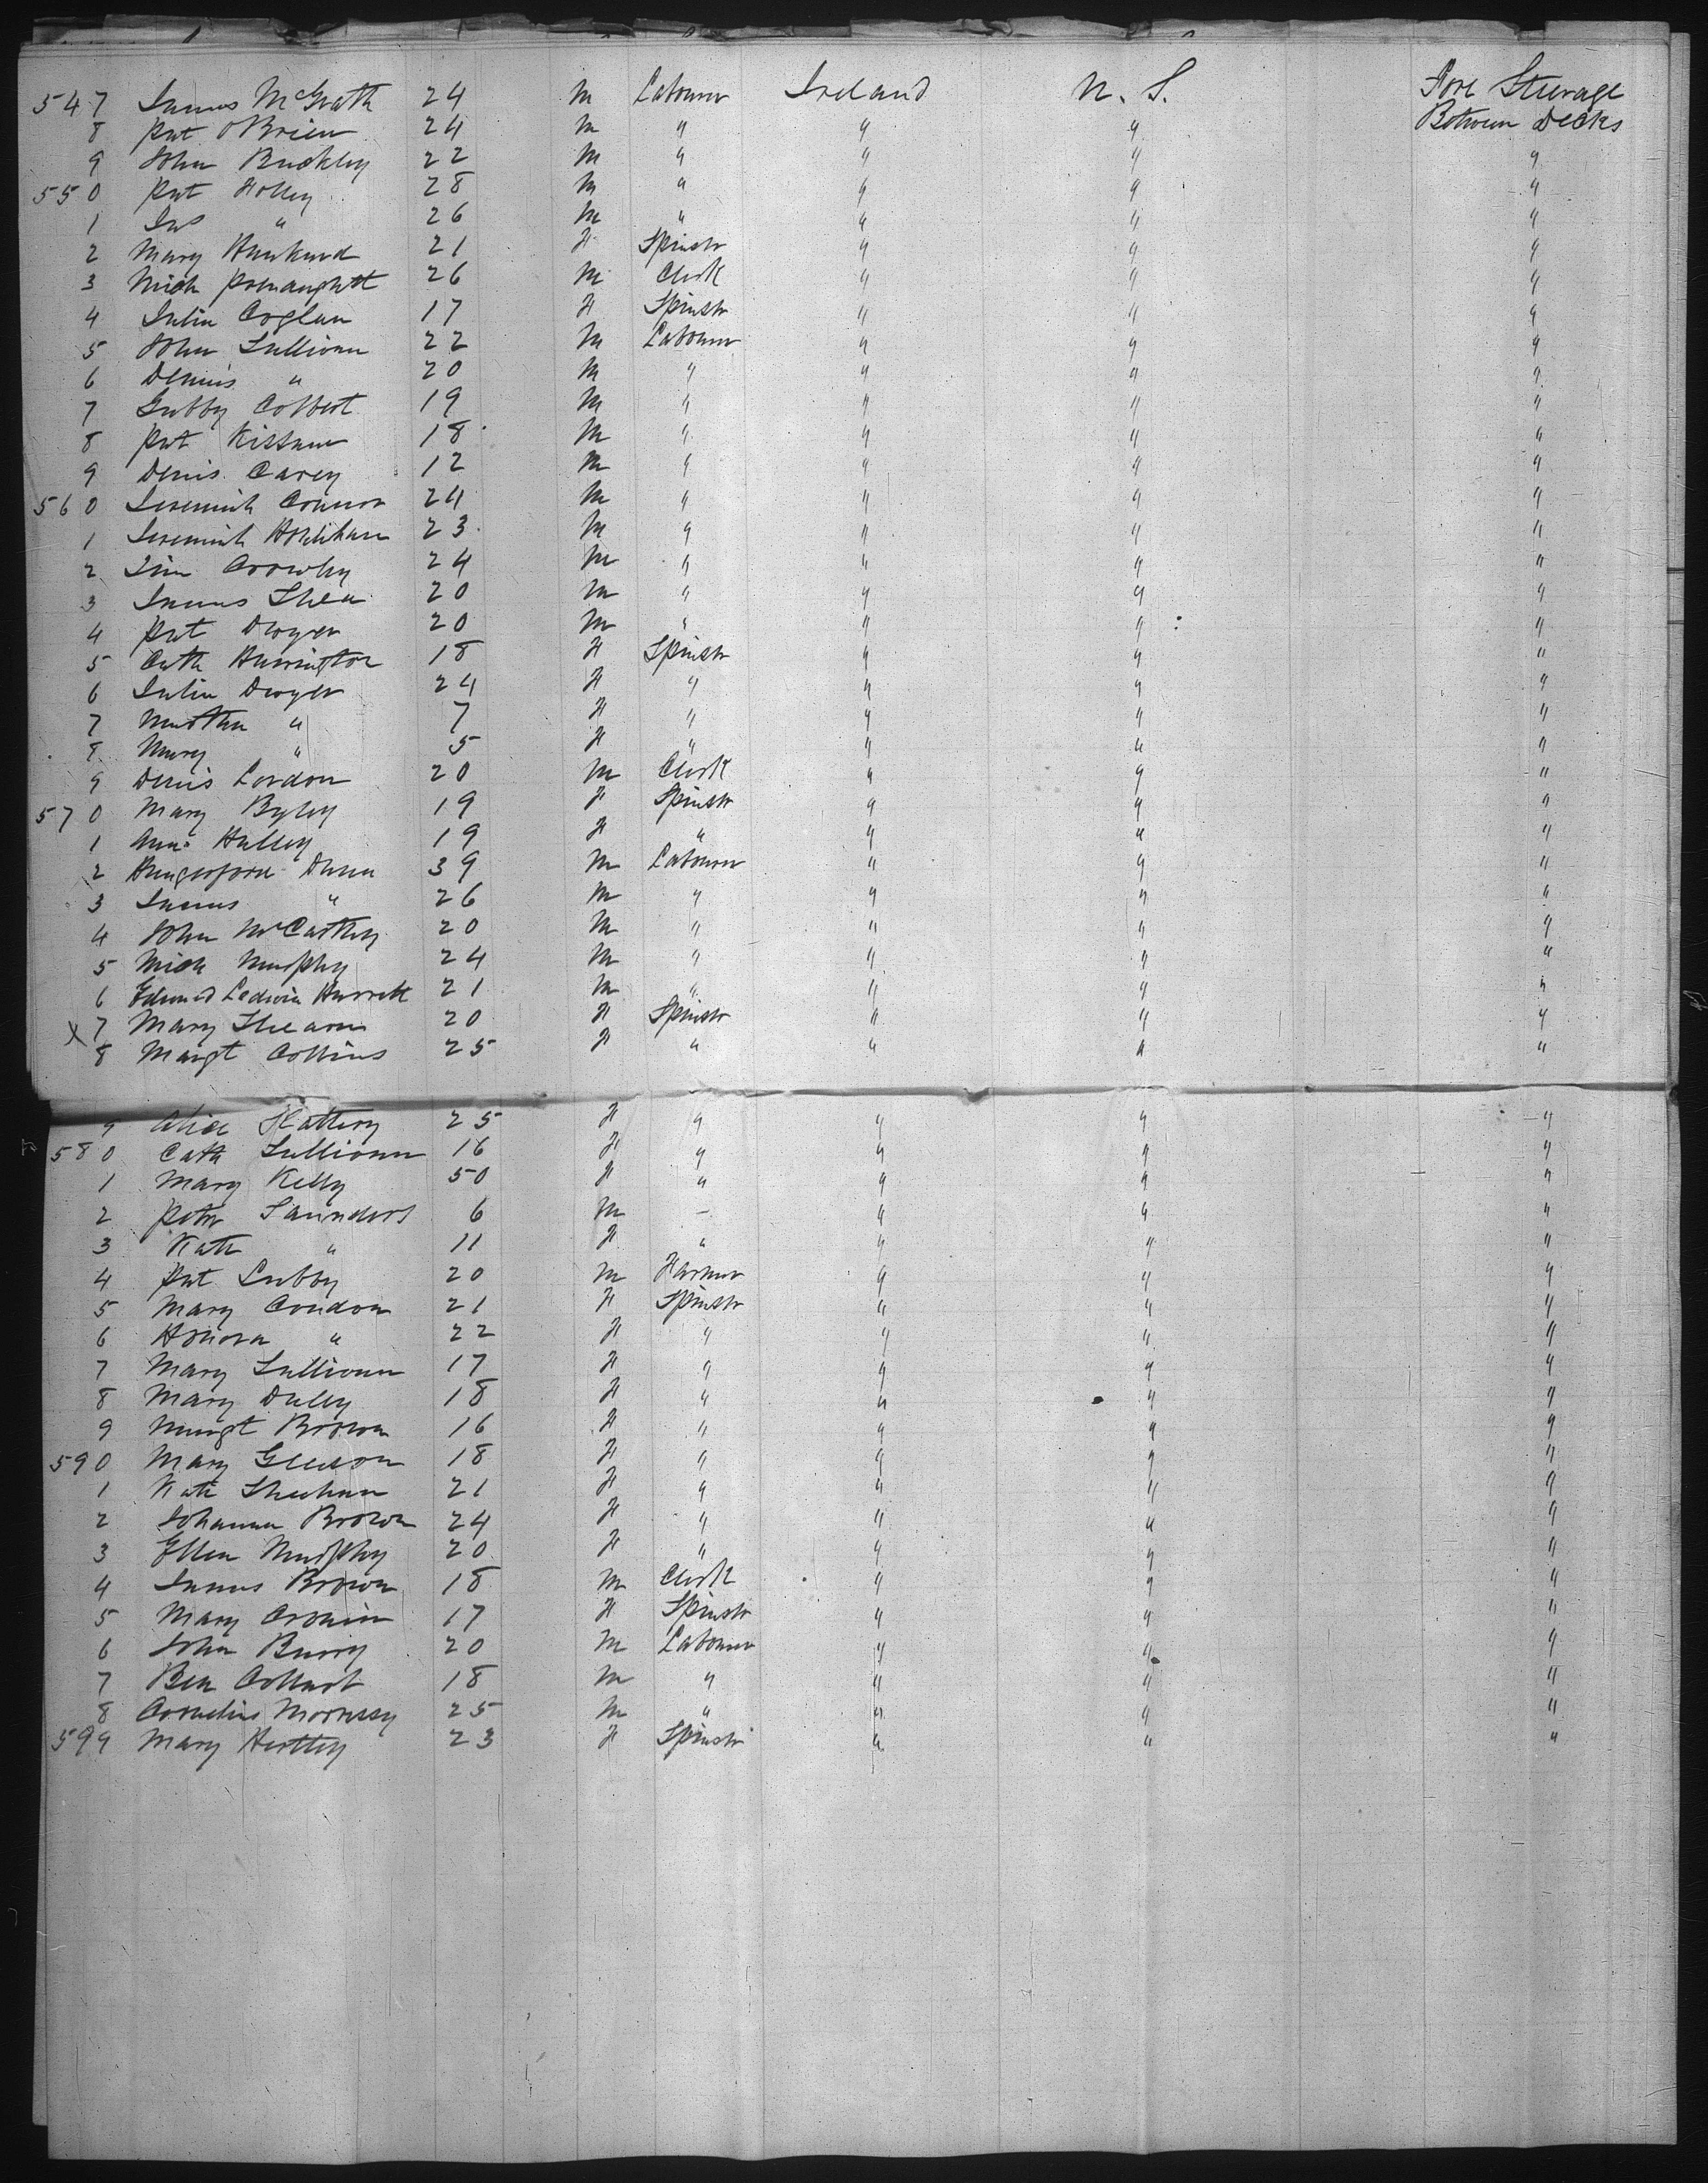 547 James McGrath 24 M Labourer Ireland N. S. Fore Steerage
8 Pat O'Brien 24 M " " " Between Decks
9 John Buckley 22 M " " " "
550 Pat Holley 28 M " " " "
1 Jas " 26 M " " " "
2 Mary 21 F Spinstr " " "
3 Mich 26 M Clerk " " "
4 Julia Coglan 17 F Spinstr " " "
5 John Sullivan 22 M Labourer " " "
6 Dennis " 20 M " " " "
7 Gubby Colbert 19 M " " " "
8 Pat Kissane 18 M " " " "
9 Denis Carey 12 M " " " "
560 Jeremiah Connor 24 M " " " "
1 Jeremiah Holihan 23 M " " " "
2 Tim Crowley 24 M " " " "
3 James Shea 20 M " " " "
4 Pat Dwyer 20 M " " " "
5 Cath Harrington 18 F Spinstr " " "
6 Julia Dwyer 24 F " " " "
7 Martha " 7 F " " " "
8 Mary " 5 F " " " "
9 Denis Lordon 20 M Clerk " " "
570 Mary Byley 19 F Spinstr " " "
1 Ann Halley 19 F " " " "
2 Hungerford Dunn 39 M Labourer " " "
3 James " 26 M " " " "
4 John McCarthy 20 M " " " "
5 Mich Murphy 24 M " " " "
6 Edmund Ledwin Barrett 21 M " " " "
X 7 Mary Shearn 20 F Spinstr " " "
8 Margt Collins 25 F " " " "
9 Alice Slattery 25 F " " " "
580 Cath Sullivan 16 F " " " "
1 Mary Kelly 50 F " " " "
2 Peter Saunders 6 M - " " "
3 Kate " 11 F " " " "
4 Pat Lubby 20 M Farmer " " "
5 Mary Condon 21 F Spinstr " " "
6 Honora " 22 F " " " "
7 Mary Sullivan 17 F " " " "
8 Mary Daley 18 F " " " "
9 Margt Brown 16 F " " " "
590 Mary Gleeson 18 F " " " "
1 Kate Sheehan 21 F " " " "
2 Johanna Brown 24 F " " " "
3 Ellen Murphy 20 F " " " "
4 James Brown 18 M Clerk " " "
5 Mary Cronin 17 F Spinstr " " "
6 John Barry 20 M Labourer " " "
7 Ben 18 M " " " "
8 Cornelius Morrissy 25 M " " " "
599 Mary Hertley 23 F Spinstr " " "